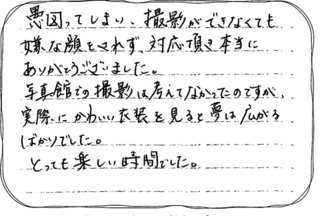 愚図ってしまい、撮影ができなくても
嫌な顔をされず、対応頂き本当に
ありがとうございました。
写真館での撮影は考えてなかったのですが、
実際にかわいい衣装を見ると夢は広がる
ばかりでした。
とっても楽しい時間でした。